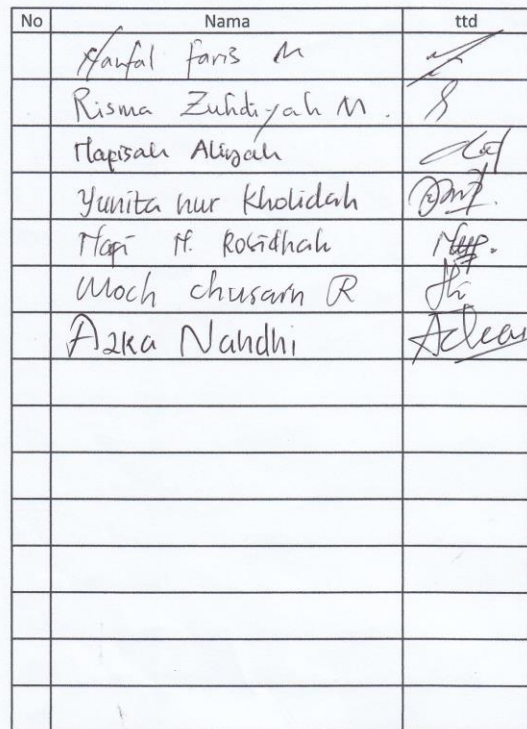 No Nama ttd
Naufal Faris M
Risma Zuhdiyah M.
Hafisah Aliyah
Yunita nur Kholidah
Hapi H. Rosidhah
Moch chusain R
Azka Nahdhi